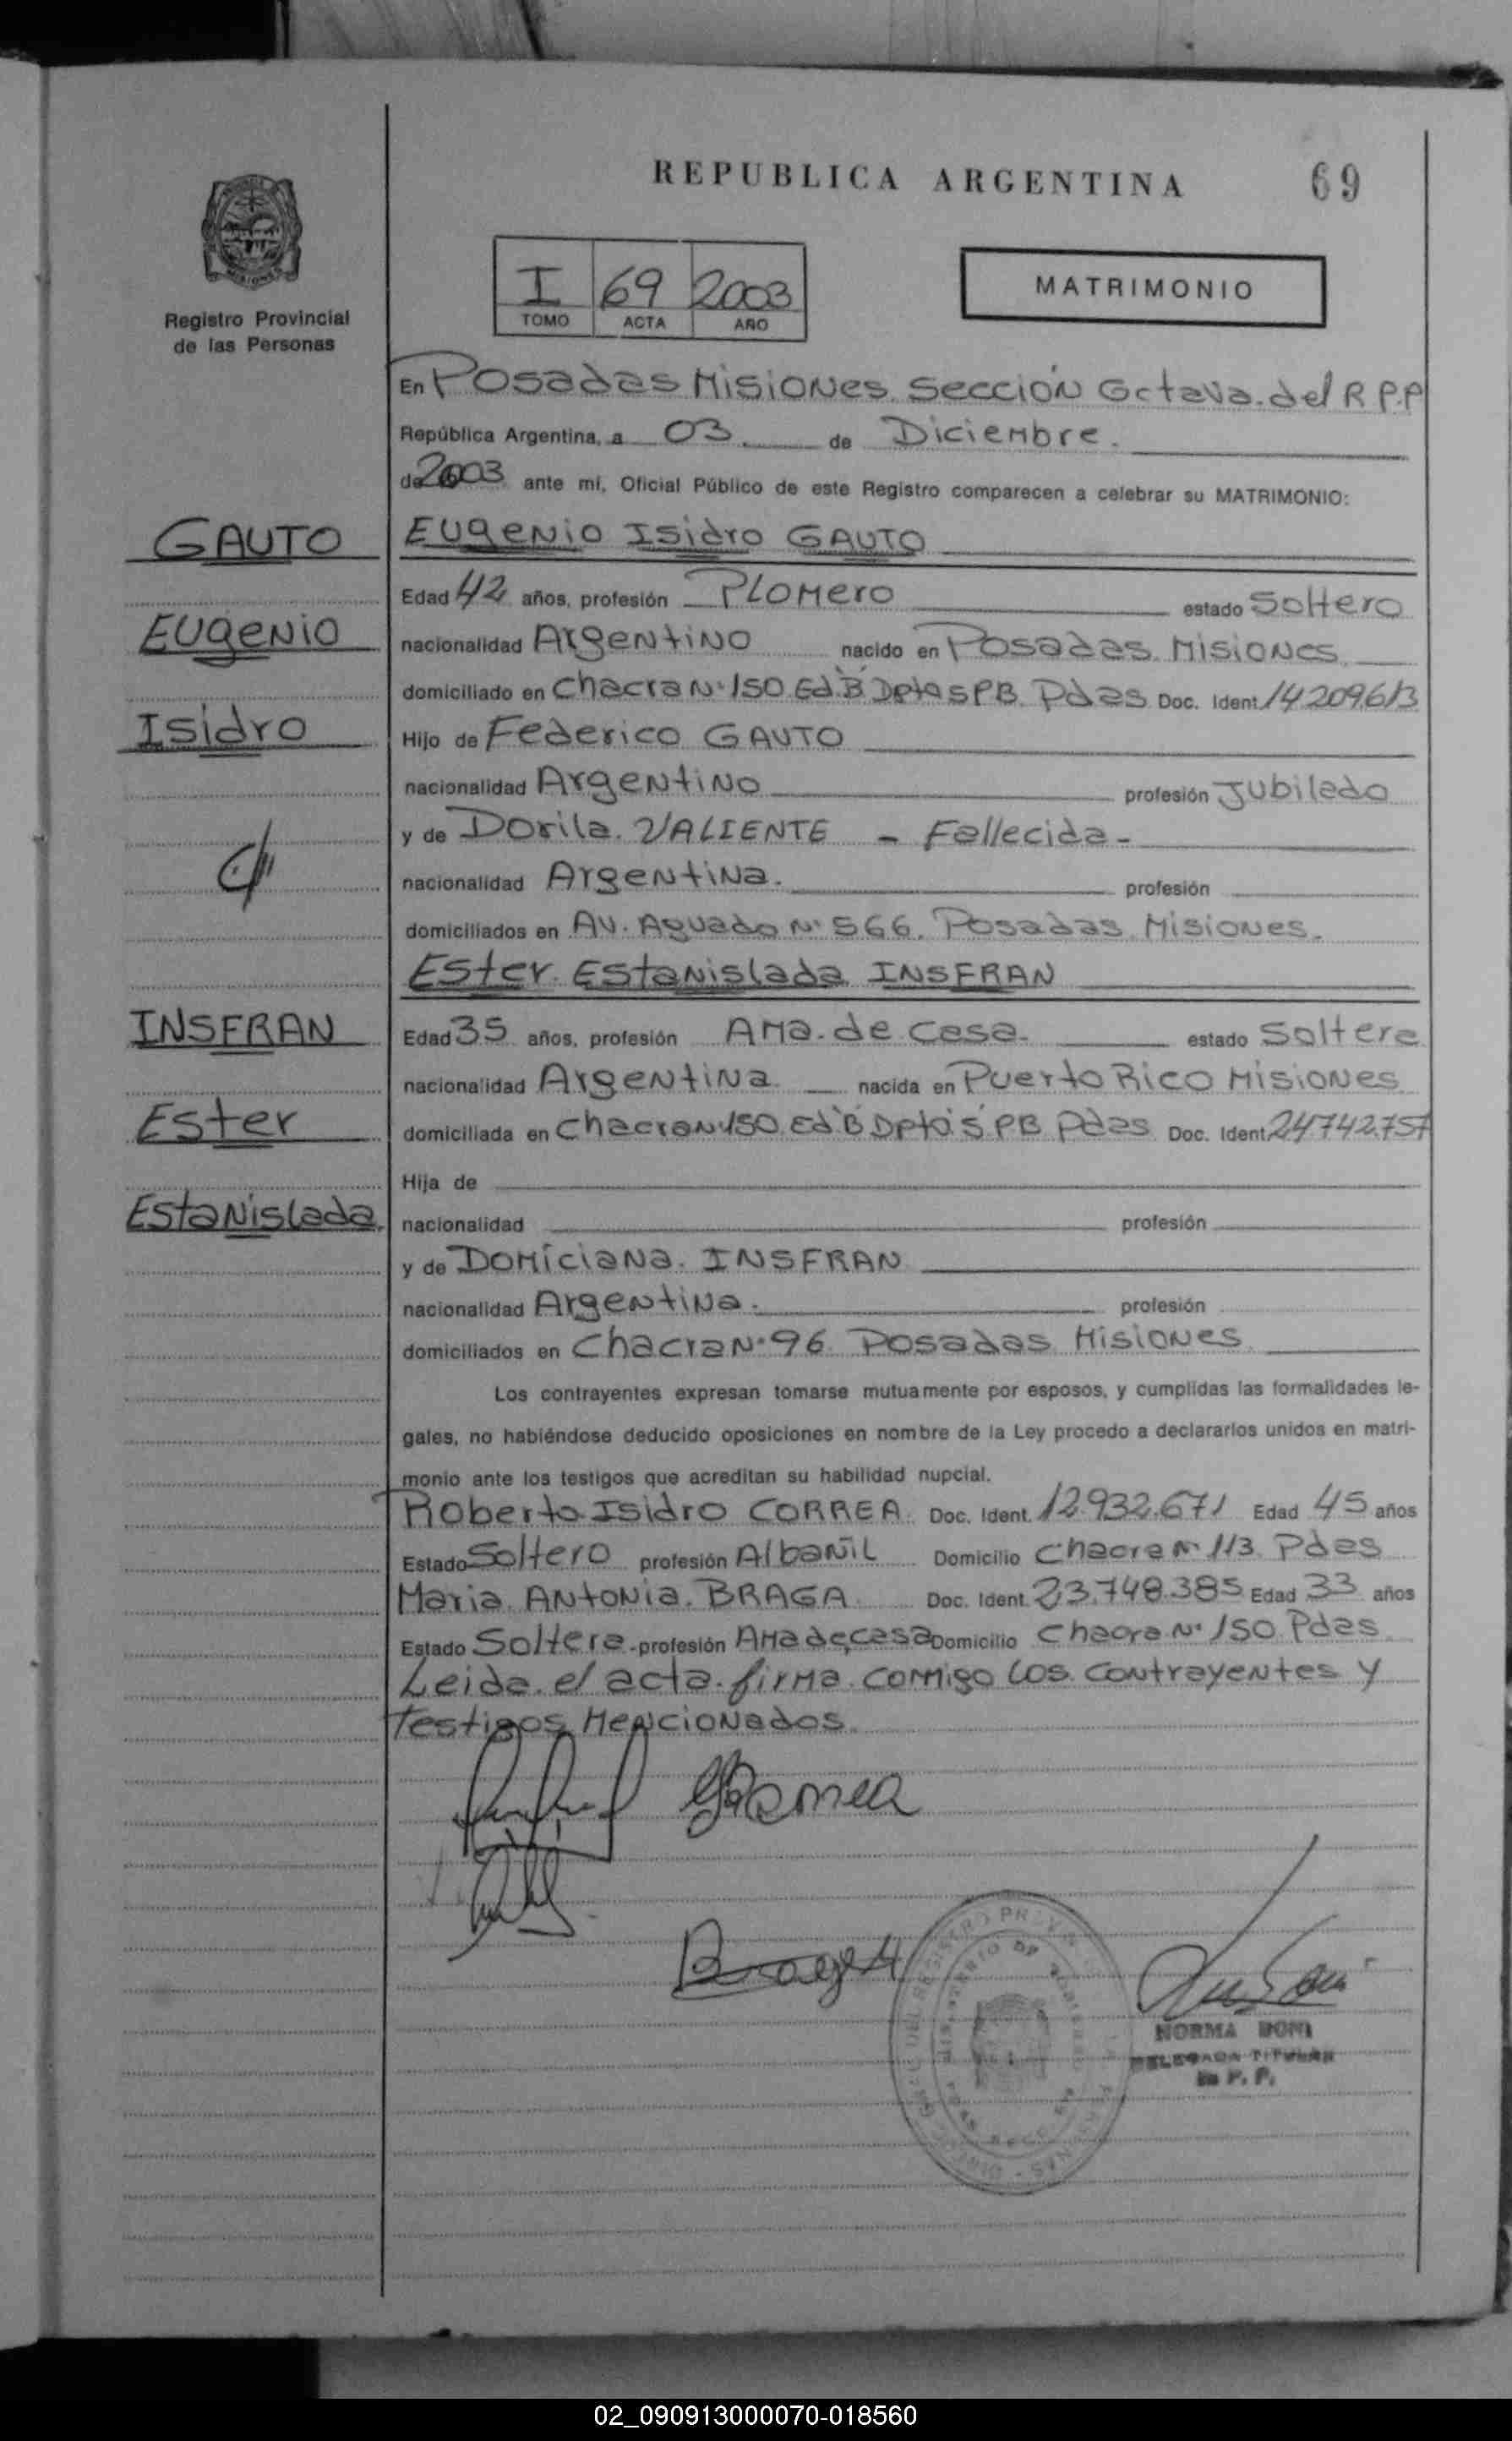 REPUBLICA ARGENTINA 69
Registro Provincial
de las Personas
I 69 2003
TOMO ACTA AÑO
MATRIMONIO
En Posadas Misiones. Sección Octava. del R P.P
República Argentina, a 03. de Diciembre.
de 2003 ante mí, Oficial Público de este Registro comparecen a celebrar su MATRIMONIO:
GAUTO
Eugenio
Isidro
Eugenio Isidro GAUTO
Edad 42 años, profesión Plomero estado Soltero
nacionalidad Argentino nacido en Posadas. Misiones
domiciliado en Chacra N° 150. Ed. B Dpto 5 PB. Pdas Doc. Ident. 14.209.613
Hijo de Federico GAUTO
nacionalidad Argentino profesión Jubilado
y de Dorila. VALIENTE - Fallecida -
nacionalidad Argentina. profesión
domiciliados en Av. Aguado N° 566. Posadas. Misiones.
INSFRAN
Ester
Estanislada.
Ester. Estanislada INSFRAN
Edad 35 años, profesión Ama. de casa. estado Soltera
nacionalidad Argentina nacida en Puerto Rico Misiones
domiciliada en Chacra N° 150. Ed B Dpto 5 PB Pdas Doc. Ident. 24.742.757
Hija de
nacionalidad profesión
y de Domiciana. INSFRAN
nacionalidad Argentina. profesión
domiciliados en Chacra N° 96. Posadas Misiones
Los contrayentes expresan tomarse mutuamente por esposos, y cumplidas las formalidades le-
gales, no habiéndose deducido oposiciones en nombre de la Ley procedo a declararlos unidos en matri-
monio ante los testigos que acreditan su habilidad nupcial.
Roberto Isidro CORREA. Doc. Ident. 12.932.671 Edad 45 años
Estado Soltero profesión Albañil Domicilio Chacra N° 113. Pdas
Maria. Antonia. BRAGA. Doc. Ident. 23.748.385 Edad 33 años
Estado Soltera profesión Ama de casa Domicilio Chacra N° 150 Pdas
Leida. el acta. firma. comigo los. contrayentes y
testigos Mencionados.
NORMA BONI
DELEGADA TITULAR
R. P. P.
02_090913000070-018560